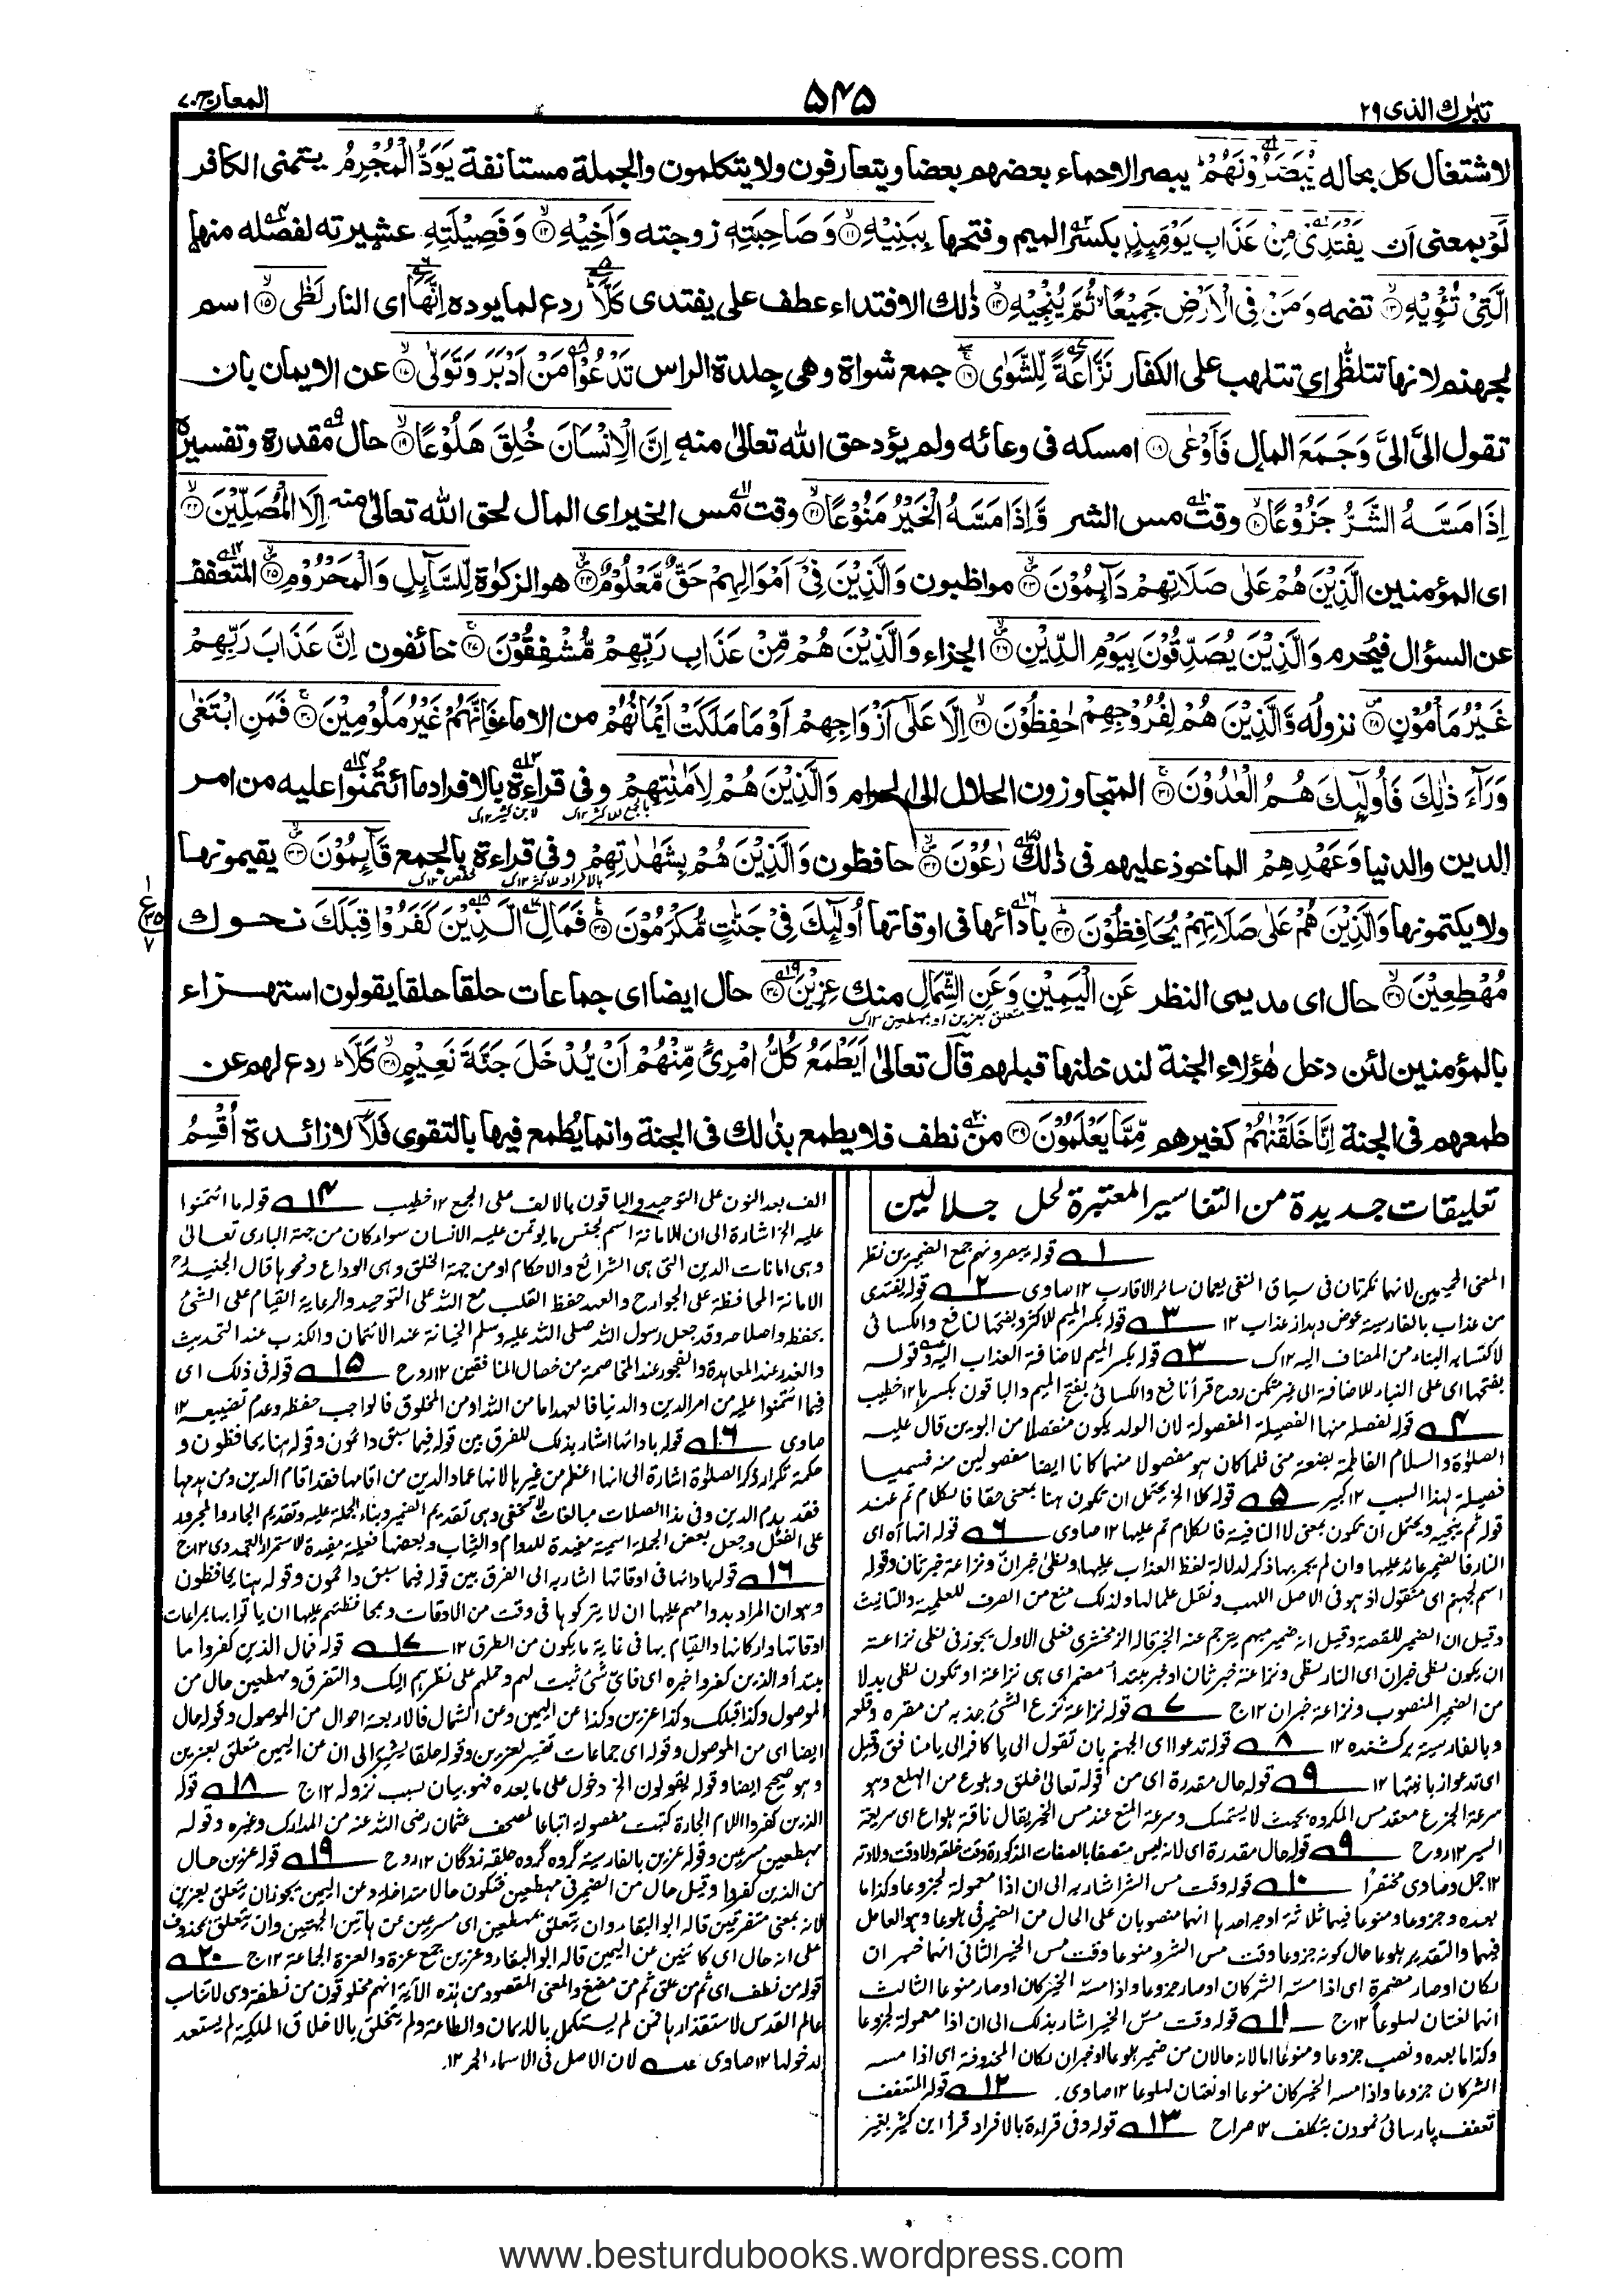 تبٰرك الذى ٢٩
٥٤٥
المعارج ٧٠
لاشتغال كل بحاله يُبَصَّرُوْنَهُمْ يبصر الاحماء بعضهم بعضا ويتعارفون ولا يتكلمون والجملة مستانفة يَوَدُّ الْمُجْرِمُ يتمنى الكافر
لَوْ بمعنى ان يَفْتَدِىْ مِنْ عَذَابِ يَوْمِئِذٍ بكسر الميم وفتحها بِبَنِيْهِ ۙ﴿١١﴾ وَصَاحِبَتِهٖ زوجته وَاَخِيْهِ ۙ﴿١٢﴾ وَفَصِيْلَتِهِ عشيرته لفصله منها
الَّتِىْ تُـْٔوِيْهِ ۙ﴿١٣﴾ تضمه وَمَنْ فِى الْاَرْضِ جَمِيْعًا ثُمَّ يُنْجِيْهِ ۙ﴿١٤﴾ ذٰلك الافتداء عطف على يفتدى كَلَّا ردع لما يوده اِنَّهَا اى النار لَظٰى ۙ﴿١٥﴾ اسم
لجهنم لانها تتلظّٰى اى تتلهب على الكفار نَزَّاعَةً لِّلشَّوٰى ۚ﴿١٦﴾ جمع شواة وهى جلدة الراس تَدْعُوْا مَنْ اَدْبَرَ وَتَوَلّٰى ۙ﴿١٧﴾ عن الايمان بان
تقول الىَّ الىَّ وَجَمَعَ المال فَاَوْعٰى ﴿١٨﴾ امسكه فى وعائه ولم يؤد حق الله تعالىٰ منه اِنَّ الْاِنْسَانَ خُلِقَ هَلُوْعًا ۙ﴿١٩﴾ حال مقدرة وتفسيره
اِذَا مَسَّهُ الشَّرُّ جَزُوْعًا ۙ﴿٢٠﴾ وقت مس الشر وَّاِذَا مَسَّهُ الْخَيْرُ مَنُوْعًا ۙ﴿٢١﴾ وقت مس الخير اى المال لحق الله تعالىٰ منه اِلَّا الْمُصَلِّيْنَ ۙ﴿٢٢﴾
اى المؤمنين الَّذِيْنَ هُمْ عَلٰى صَلَاتِهِمْ دَآئِمُوْنَ ۙ﴿٢٣﴾ مواظبون وَالَّذِيْنَ فِىْٓ اَمْوَالِهِمْ حَقٌّ مَّعْلُوْمٌ ۙ﴿٢٤﴾ هو الزكوٰة لِّلسَّآئِلِ وَالْمَحْرُوْمِ ۙ﴿٢٥﴾ المتعفف
عن السؤال فيُحرم وَالَّذِيْنَ يُصَدِّقُوْنَ بِيَوْمِ الدِّيْنِ ۙ﴿٢٦﴾ الجزاء وَالَّذِيْنَ هُمْ مِّنْ عَذَابِ رَبِّهِمْ مُّشْفِقُوْنَ ۚ﴿٢٧﴾ خائفون اِنَّ عَذَابَ رَبِّهِمْ
غَيْرُ مَاْمُوْنٍ ﴿٢٨﴾ نزوله وَّالَّذِيْنَ هُمْ لِفُرُوْجِهِمْ حٰفِظُوْنَ ۙ﴿٢٩﴾ اِلَّا عَلٰٓى اَزْوَاجِهِمْ اَوْ مَا مَلَكَتْ اَيْمَانُهُمْ من الاماء فَاِنَّهُمْ غَيْرُ مَلُوْمِيْنَ ۚ﴿٣٠﴾ فَمَنِ ابْتَغٰى
وَرَآءَ ذٰلِكَ فَاُولٰٓئِكَ هُمُ الْعٰدُوْنَ ۚ﴿٣١﴾ المتجاوزون الحلال الى الحرام وَالَّذِيْنَ هُمْ لِاَمٰنٰتِهِمْ وفى قراءة بالافراد ما ائتُمنوا عليه من امر
الدين والدنيا وَعَهْدِهِمْ الماخوذ عليهم فى ذٰلك رٰعُوْنَ ۙ﴿٣٢﴾ حافظون وَالَّذِيْنَ هُمْ بِشَهٰدٰتِهِمْ وفى قراءة بالجمع قَآئِمُوْنَ ۙ﴿٣٣﴾ يقيمونها
ولا يكتمونها وَالَّذِيْنَ هُمْ عَلٰى صَلَاتِهِمْ يُحَافِظُوْنَ ﴿٣٤﴾ بادائها فى اوقاتها اُولٰٓئِكَ فِىْ جَنّٰتٍ مُّكْرَمُوْنَ ﴿٣٥﴾ فَمَالِ الَّذِيْنَ كَفَرُوْا قِبَلَكَ نحوك
مُهْطِعِيْنَ ۙ﴿٣٦﴾ حال اى مديمى النظر عَنِ الْيَمِيْنِ وَعَنِ الشِّمَالِ منك عِزِيْنَ ﴿٣٧﴾ حال ايضا اى جماعات حلقا حلقا يقولون استهزاء
بالمؤمنين لئن دخل هٰؤلاء الجنة لندخلنها قبلهم قال تعالىٰ اَيَطْمَعُ كُلُّ امْرِئٍ مِّنْهُمْ اَنْ يُّدْخَلَ جَنَّةَ نَعِيْمٍ ۙ﴿٣٨﴾ كَلَّا ردع لهم عن
طمعهم فى الجنة اِنَّا خَلَقْنٰهُمْ كغيرهم مِّمَّا يَعْلَمُوْنَ ﴿٣٩﴾ من نطف فلا يطمع بذٰلك فى الجنة وانما يُطمع فيها بالتقوى فَلَآ لا زائدة اُقْسِمُ
تعليقات جديدة من التفاسير المعتبرة لحل جلالين
١ قوله يبصرونهم جمع الضميرين نظر
المعنى الحميمين لانهما نكرتان فى سياق النفى يعمان سائر الاقارب ١٢ صاوى ٢ قوله يفتدى
من عذاب بالفارسية عوض دهد از عذاب ١٢ ٣ قوله بكسر الميم للاكثر وبفتحها لنافع والكسائى
لاكتسابه البناء من المضاف اليه ١٢ ك ٣ قوله بكسر الميم لاضافة العذاب اليه وقوله
بفتحها اى على البناء للاضافة الى غير متمكن روح قرأ نافع والكسائى بفتح الميم والباقون بكسرها ١٢ خطيب
٤ قوله لفصله منها الفصيلة المفصولة لان الولد يكون منفصلا من الابوين قال عليه
الصلوٰة والسلام الفاطمة بضعة منى فلما كان هو مفصولا منهما كانا ايضا مفصولين منه فسميا
فصيلة لهذا السبب ١٢ كبير ٥ قوله كلا الخ يحتمل ان تكون هنا بمعنى حقا فالكلام تم عند
قوله ثم ينجيه ويحتمل ان تكون بمعنى لا النافية فالكلام تم عليها ١٢ صاوى ٦ قوله انها اه اى
النار فالضمير عائد عليها وان لم يجر بها ذكر لدلالة لفظ العذاب عليها ولظى خبر ان ونزاعة خبر ثان وقوله
اسم لجهنم اى منقول اذ هو فى الاصل اللهب ونقل علما لها ولذلك منع من الصرف للعلمية والتانيث
وقيل ان الضمير للقصة وقيل انه ضمير مبهم يترجم عنه الخبر قاله الزمخشرى فعلى الاول يجوز فى لظى نزاعة
ان يكون لظى خبر ان اى النار لظى ونزاعة خبر ثان او خبر مبتدأ مضمر اى هى نزاعة او تكون لظى بدلا
من الضمير المنصوب ونزاعة خبر ان ١٢ ج ٧ قوله نزاعة نزع الشئ جذبه من مقره وقلعه
وبالفارسية بركشنده ١٢ ٨ قوله تدعوا اى الجهنم بان تقول الى يا كافر الى يا منافق وقيل
اى تدعو زبانيتها ١٢ ٩ قوله حال مقدرة اى من قوله تعالىٰ خلق وهلوع من الهلع وهو
سرعة الجزع عند مس المكروه بحيث لا يستمسك وسرعة المنع عند مس الخير يقال ناقة هلواع اى سريعة
السير ١٢ روح ٩ قوله حال مقدرة اى لانه ليس متصفا بالصفات المذكورة وقت خلقه ولا وقت ولادته
١٢ جمل وصاوى مختصراً ١٠ قوله وقت مس الشر اشار به الى ان اذا معمولة لجزوعا وكذا ما
بعده وجزوعا ومنوعا فيهما ثلاثة اوجه احدها انهما منصوبان على الحال من الضمير فى هلوعا وهو العامل
فيهما والتقدير هلوعا حال كونه جزوعا وقت مس الشر ومنوعا وقت مس الخير الثانى انهما خبران
لكان او صار مضمرة اى اذا مسه الشر كان او صار جزوعا واذا مسه الخير كان او صار منوعا الثالث
انهما نعتان لهلوعاً ١٢ ج ١١ قوله وقت مس الخير اشار بذلك الى ان اذا معمولة لجزوعا
وكذا ما بعده ونصب جزوعا ومنوعا اما لانه حالان من ضمير هلوعا او خبران لكان المحذوفة اى اذا مسه
الشر كان جزوعا واذا مسه الخير كان منوعا او نعتان لهلوعا ١٢ صاوى. ١٢ قوله المتعفف
تعفف پارسائى نمودن بتكلف ١٢ صراح ١٣ قوله وفى قراءة بالافراد قرأ ابن كثير بغير
الف بعد النون على التوحيد والباقون بالالف على الجمع ١٢ خطيب ١٤ قوله ما ائتمنوا
عليه الخ اشارة الى ان الامانة اسم لجنس ما يوتمن عليه الانسان سواء كان من جهة البارى تعالىٰ
وهى امانات الدين التى هى الشرائع والاحكام او من جهة الخلق وهى الودائع ونحوها قال الجنيد
الامانة المحافظة على الجوارح والعهد حفظ القلب مع الله على التوحيد والرعاية القيام على الشئ
بحفظه واصلاحه وقد جعل رسول الله صلى الله عليه وسلم الخيانة عند الائتمان والكذب عند التحديث
والغدر عند المعاهدة والفجور عند المخاصمة من خصال المنافقين ١٢ روح ١٥ قوله فى ذلك اى
فيما ائتمنوا عليه من امر الدين والدنيا فالعهد اما من الله او من المخلوق فالواجب حفظه وعدم تضييعه ١٢
صاوى ١٦ قوله بادائها اشار بذلك للفرق بين قوله فيما سبق دائمون وقوله هنا يحافظون و
حكمة تكرار ذكر الصلوٰة اشارة الى انها اعظم من غيرها لانها عماد الدين من اقامها فقد اقام الدين ومن هدمها
فقد هدم الدين وفى هذا الصلات مبالغات لا تخفى وهى تقديم الضمير وبناء الجملة عليه وتقديم الجار والمجرور
على الفعل وجعل بعض الجملة اسمية مفيدة للدوام والثبات وبعضها فعلية مفيدة لاستمرار التجددى ١٢ ج
١٦ قوله بادائها فى اوقاتها اشار به الى الفرق بين قوله فيما سبق دائمون وقوله هنا يحافظون
وهو ان المراد بدوامهم عليها ان لا يتركوها فى وقت من الاوقات وبمحافظتهم عليها ان ياتوا بها بمراعات
اوقاتها واركانها والقيام بها فى غاية ما يكون من الطرق ١٢ ١٧ قوله فمال الذين كفروا ما
مبتدأ والذين كفروا خبره اى فاىّ شئ ثبت لهم وحملهم على نظرهم اليك والتفرق ومهطعين حال من
الموصول وكذا قبلك وكذا عزين وكذا عن اليمين وعن الشمال فالاربعة احوال من الموصول وقوله حال
ايضا اى من الموصول وقوله اى جماعات تفسير لعزين وقوله حلقا يشير الى ان عن اليمين متعلق بعزين
وهو صحيح ايضا وقوله يقولون الخ دخول على ما بعده فهو بيان سبب نزوله ١٢ ج ١٨ قوله
الذين كفروا اللام الجارة كتبت مفصولة اتباعا لمصحف عثمان رضى الله عنه من المدارك وغيره وقوله
مهطعين مسرعين وقوله عزين بالفارسية گروه گروه حلقه زدگان ١٢ روح ١٩ قوله عزين حال
من الذين كفروا وقيل حال من الضمير فى مهطعين فتكون حالا متداخلة وعن اليمين يجوز ان يتعلق بعزين
لانه بمعنى متفرقين قاله ابو البقاء وان يتعلق بمهطعين اى مسرعين عن هاتين الجهتين وان يتعلق بمحذوف
على انه حال اى كائنين عن اليمين قاله ابو البقاء وعزين جمع عزة والعزة الجماعة ١٢ ج ٢٠
قوله من نطف اى ثم من علق ثم من مضغ والمعنى المقصود من هذه الآية انهم مخلوقون من نطفة وهى لا تناسب
عالم القدس لاستقذارها فمن لم يستكمل بالايمان والطاعة ولم يتخلق بالاخلاق الملكية لم يستعد
لدخولها ١٢ صاوى عه لان الاصل فى الاسماء الجر ١٢.
www.besturdubooks.wordpress.com